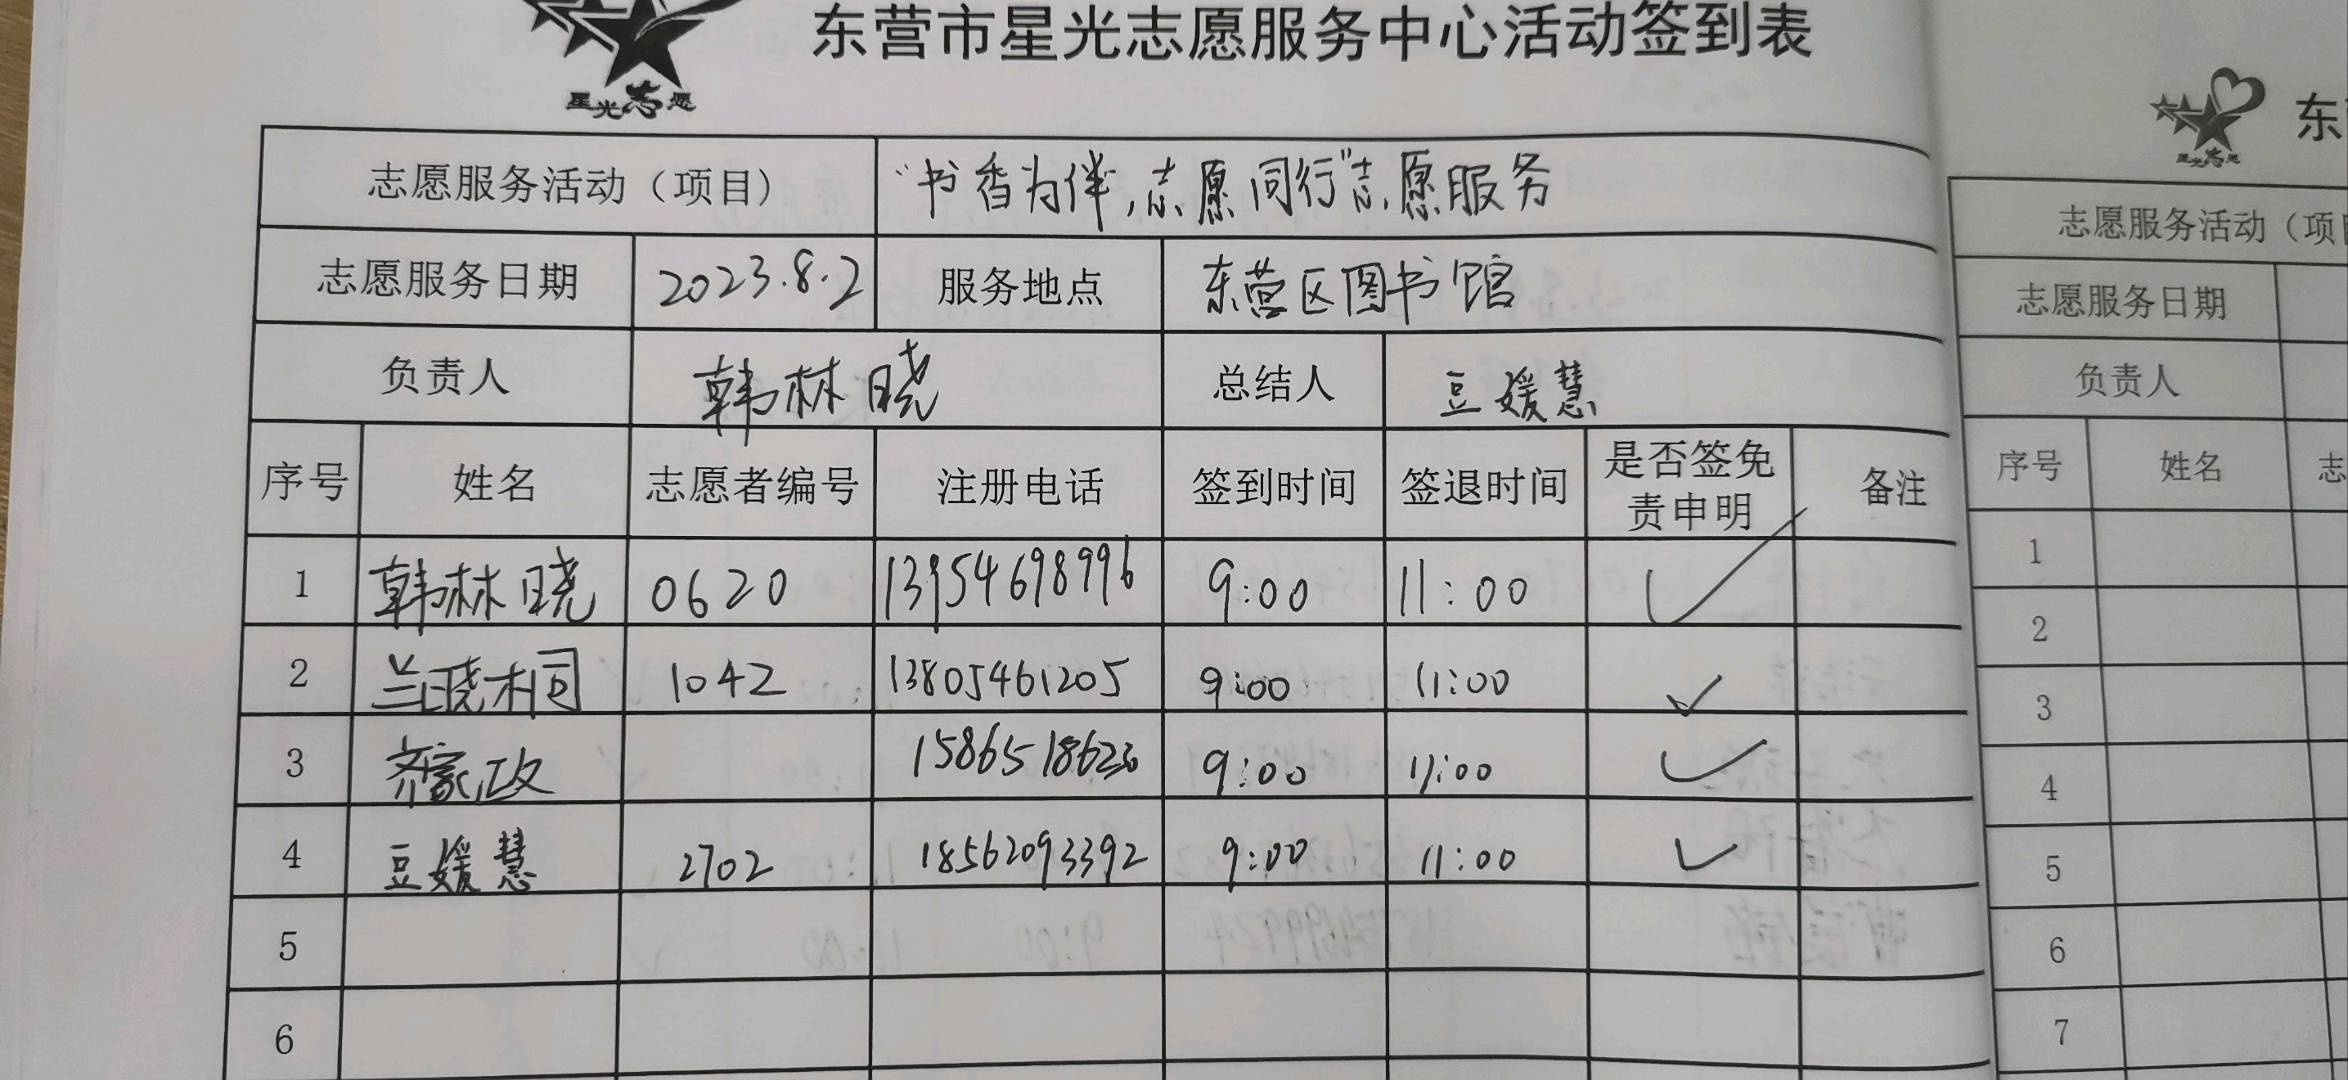 东营市星光志愿服务中心活动签到表
星光志愿
志愿服务活动（项目） “书香为伴,志愿同行”志愿服务
志愿服务日期 2023.8.2 服务地点 东营区图书馆
负责人 韩林晓 总结人 豆媛慧
序号 姓名 志愿者编号 注册电话 签到时间 签退时间 是否签免责申明 备注
1 韩林晓 0620 13954698996 9:00 11:00 ✓
2 兰晓桐 1042 13805461205 9:00 11:00 ✓
3 齐家政 9:00 11:00 ✓
4 豆媛慧 2702 18562093392 9:00 11:00 ✓
5
6
星光志愿
东
志愿服务活动（项
志愿服务日期
负责人
序号 姓名 志
1
2
3
4
5
6
7